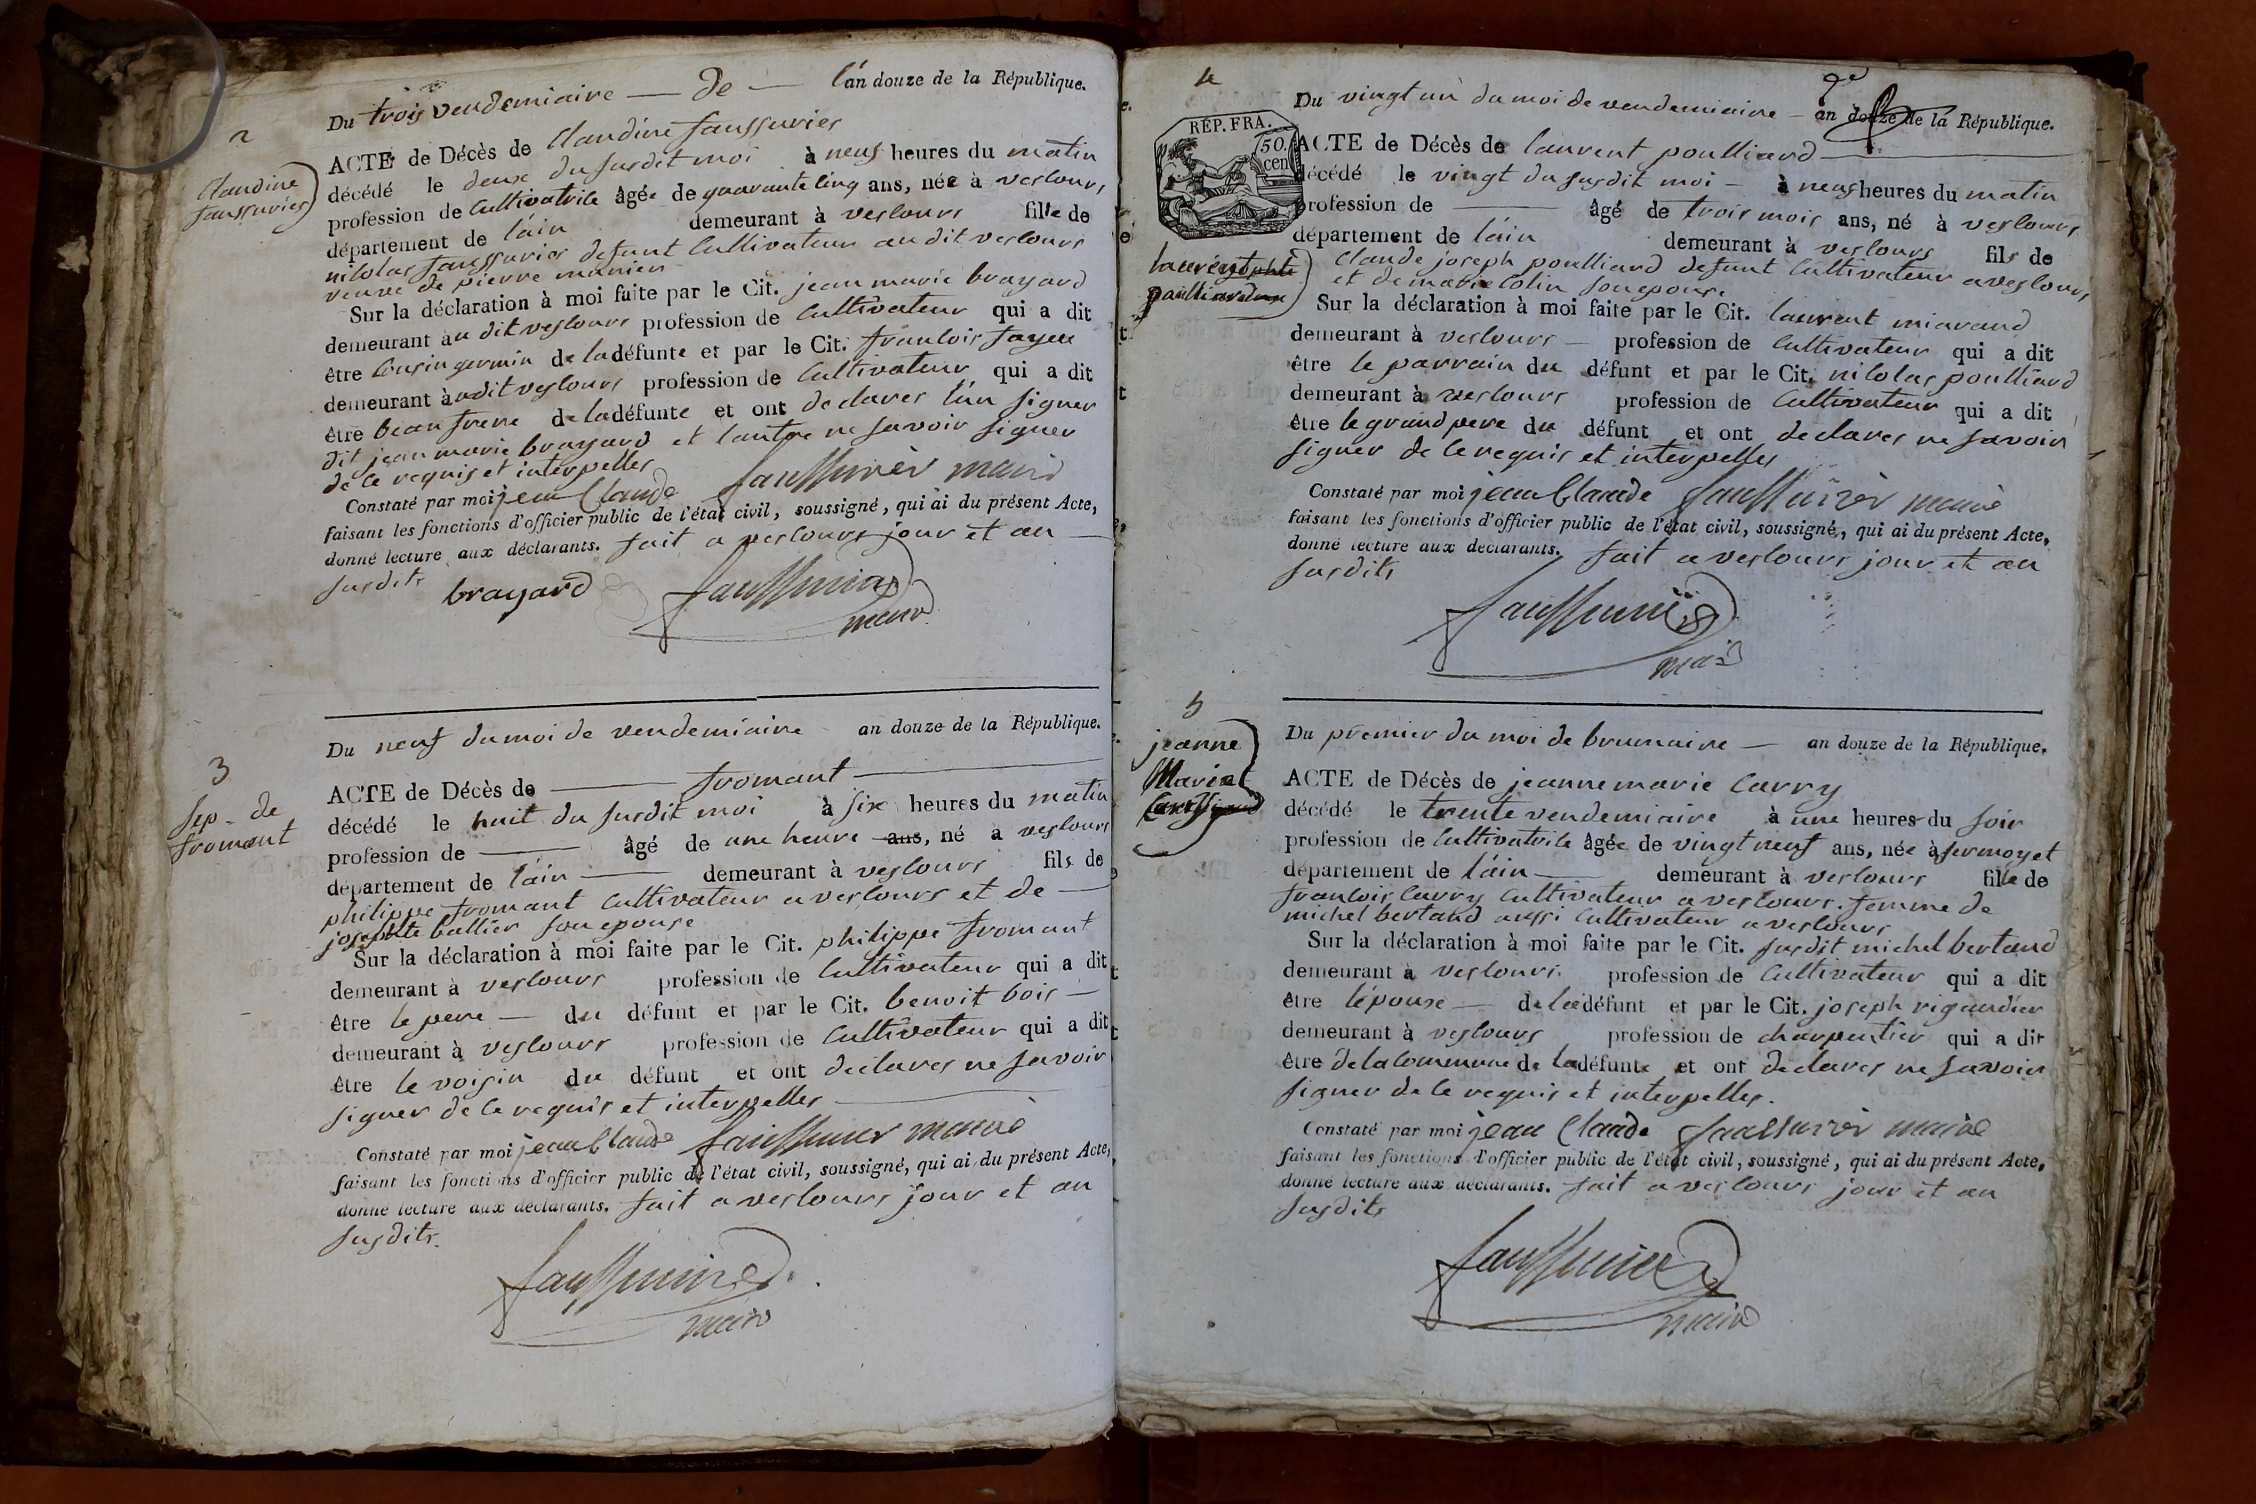 2
Du trois vendemiaire — de — l'an douze de la République.
Claudine
saussuries
ACTE de Décès de Claudine saussuries
décédé le deux du susdit moi à neuf heures du matin
profession de Cultivatrice âgée de quarante cinq ans, née à vescours
département de l'ain demeurant à vescours fille de
nicolas saussuries defunt Cultivateur au dit vescours
veuve de pierre
Sur la déclaration à moi faite par le Cit. jean marie brayard
demeurant au dit vescours profession de Cultivateur qui a dit
être Cousin germin de la défunte et par le Cit. francois
demeurant à udit vescours profession de Cultivateur qui a dit
être beau frere de la défunte et ont declares l'un signer
dit jean marie brayard et l'autre ne savoir signer
de ce requis et interpelles
Constaté par moi jean Claude saussurier maire
faisant les fonctions d'officier public de l'état civil, soussigné, qui ai du présent Acte,
donné lecture aux déclarants. fait a vescours jour et an
susdits
brayard saussurier
maire
3
Du neuf du moi de vendemiaire an douze de la République.
sep - de
fromant
ACTE de Décès de — fromant —
décédé le huit du susdit moi à six heures du matin
profession de — âgé de une heure ans, né a vescours
département de l'ain — demeurant à vescours fils de
philippe fromant Cultivateur a vescours et de —
josephte ballier son epouse
Sur la déclaration à moi faite par le Cit. philippe fromant
demeurant à vescours profession de Cultivateur qui a dit
être le pere — du défunt et par le Cit. benoit bois —
demeurant à vescours profession de Cultivateur qui a dit
être le voisin du défunt et ont declares ne savoir
signer de ce requis et interpelles
Constaté par moi jean Claude saussurier maire
faisant les fonctions d'officier public de l'état civil, soussigné, qui ai du présent Acte,
donné lecture aux déclarants. fait a vescours jour et an
susdits.
saussurier
maire
4
Du vingt un du moi de vendemiaire — an douze de la République.
RÉP. FRA.
50.
cen
ACTE de Décès de laurent poulliard —
décédé le vingt du susdit moi — à neuf heures du matin
profession de — âgé de trois mois ans, né à vescours
département de l'ain demeurant à vescours fils de
Claude joseph poulliard defunt Cultivateur a vescours
et de marie Colin son epouse
Sur la déclaration à moi faite par le Cit. laurent miarand
demeurant à vescours — profession de Cultivateur qui a dit
être le parrain du défunt et par le Cit. nicolas poulliard
demeurant à vescours profession de Cultivateur qui a dit
être le grand pere du défunt et ont declares ne savoir
signer de ce requis et interpelles
Constaté par moi jean Claude saussurier maire
faisant les fonctions d'officier public de l'état civil, soussigné, qui ai du présent Acte,
donné lecture aux déclarants. fait a vescours jour et an
susdits
saussurier
maire
5
Du premier du moi de brumaire — an douze de la République.
jeanne
Marie
ACTE de Décès de jeanne marie Carry
décédé le trente vendemiaire à une heures du soir
profession de Cultivatrice âgée de vingt neuf ans, née à sermoyet
département de l'ain — demeurant à vescours fille de
francois Carry Cultivateur a vescours. femme de
michel bertand aussi Cultivateur a vescours
Sur la déclaration à moi faite par le Cit. susdit michel bertand
demeurant à vescours. profession de Cultivateur qui a dit
être l'épouse — de la défunt et par le Cit. joseph rigaudier
demeurant à vescours profession de charpentier qui a dit
être de la Commune de la défunte et ont declares ne savoir
signer de ce requis et interpelles.
Constaté par moi jean Claude saussurier maire
faisant les fonctions d'officier public de l'état civil, soussigné, qui ai du présent Acte,
donné lecture aux déclarants. fait a vescours jour et an
susdits
saussurier
maire